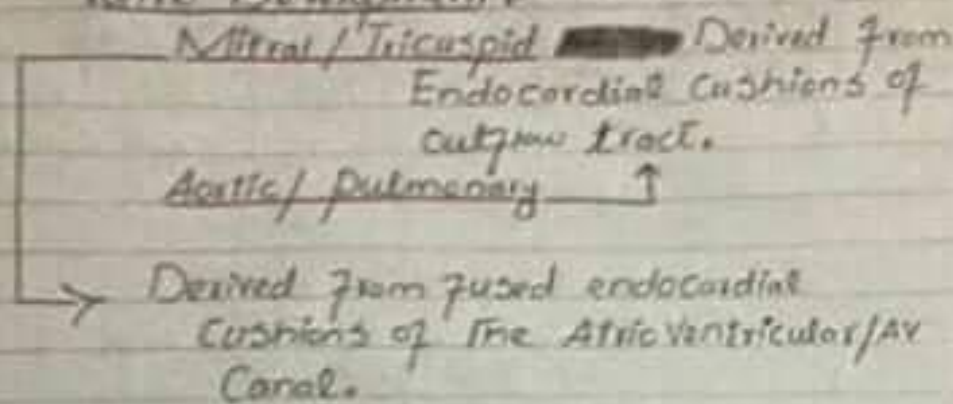 Mitral/Tricuspid Derived from
Endocardial Cushions of
outflow tract.
Aortic/ Pulmonary
Derived from fused endocardial
Cushions of The Atrioventricular/AV
Canal.